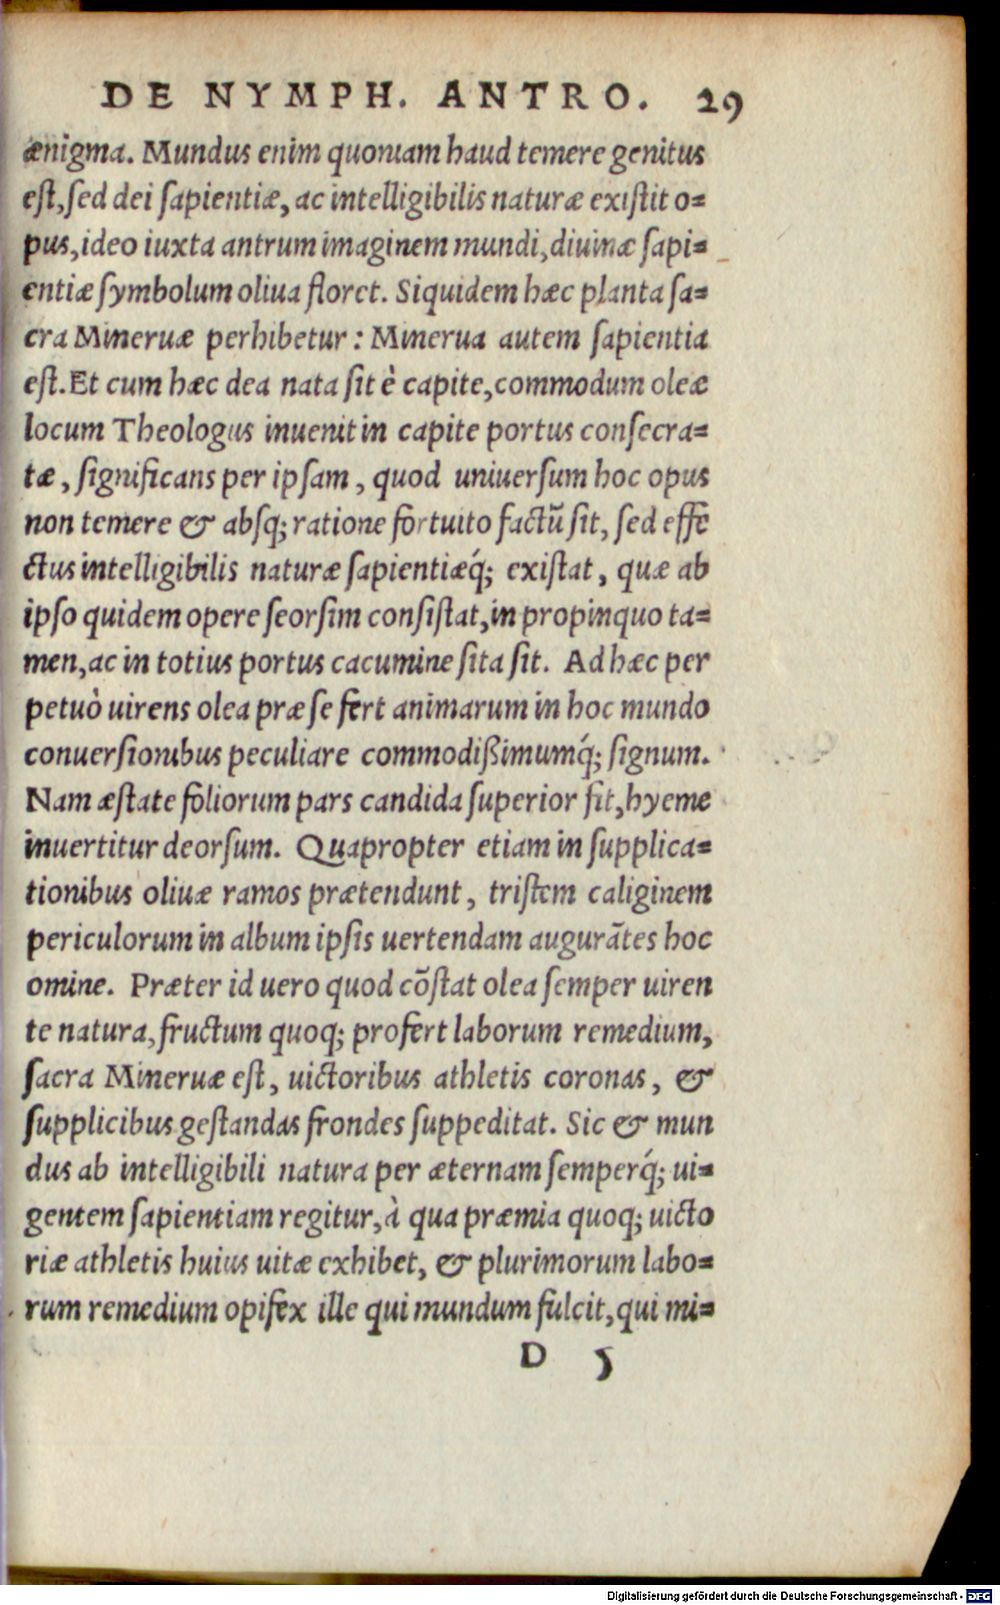 DE NYMPH. ANTRO. 29
ænigma. Mundus enim quoniam haud temere genitus
est, sed dei sapientiæ, ac intelligibilis naturæ existit o=
pus, ideo iuxta antrum imaginem mundi, diuinæ sapi=
entiæ symbolum oliua floret. Siquidem hæc planta sa=
cra Mineruæ perhibetur: Minerua autem sapientia
est. Et cum hæc dea nata sit è capite, commodum oleæ
locum Theologus inuenit in capite portus consecra=
tæ, significans per ipsam, quod uniuersum hoc opus
non temere & absq; ratione fortuito factū sit, sed effe
ctus intelligibilis naturæ sapientiæq́; existat, quæ ab
ipso quidem opere seorsim consistat, in propinquo ta=
men, ac in totius portus cacumine sita sit. Ad hæc per
petuò uirens olea præ se fert animarum in hoc mundo
conuersionibus peculiare commodißimumq́; signum.
Nam æstate foliorum pars candida superior fit, hyeme
inuertitur deorsum. Quapropter etiam in supplica=
tionibus oliuæ ramos prætendunt, tristem caliginem
periculorum in album ipsis uertendam augurātes hoc
omine. Præter id uero quod cōstat olea semper uiren
te natura, fructum quoq; profert laborum remedium,
sacra Mineruæ est, uictoribus athletis coronas, &
supplicibus gestandas frondes suppeditat. Sic & mun
dus ab intelligibili natura per æternam semperq́; ui=
gentem sapientiam regitur, à qua præmia quoq; uicto
riæ athletis huius uitæ exhibet, & plurimorum labo=
rum remedium opifex ille qui mundum fulcit, qui mi=
D 5
Digitalisierung gefördert durch die Deutsche Forschungsgemeinschaft - DFG